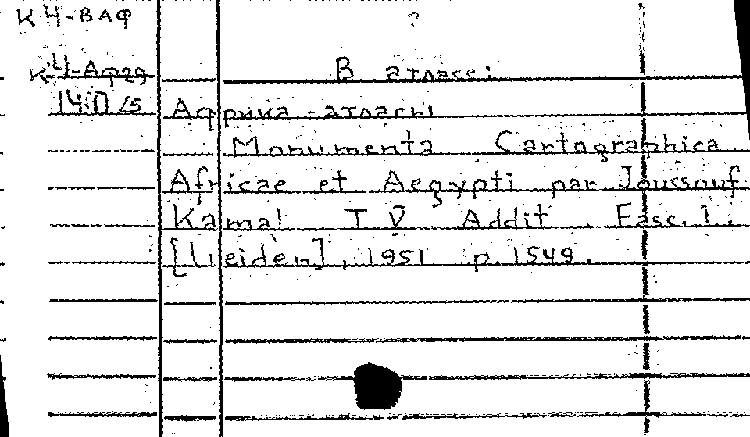 К4-ВАФ ?
К4-Афр9 В атласе:
14.0/5 Африка - атласы
Monumenta Cartographica
Africae et Aegypti par Joussouf
Kamal T V Addit. Fasc. 1.
[Leiden], 1951 p. 1549.